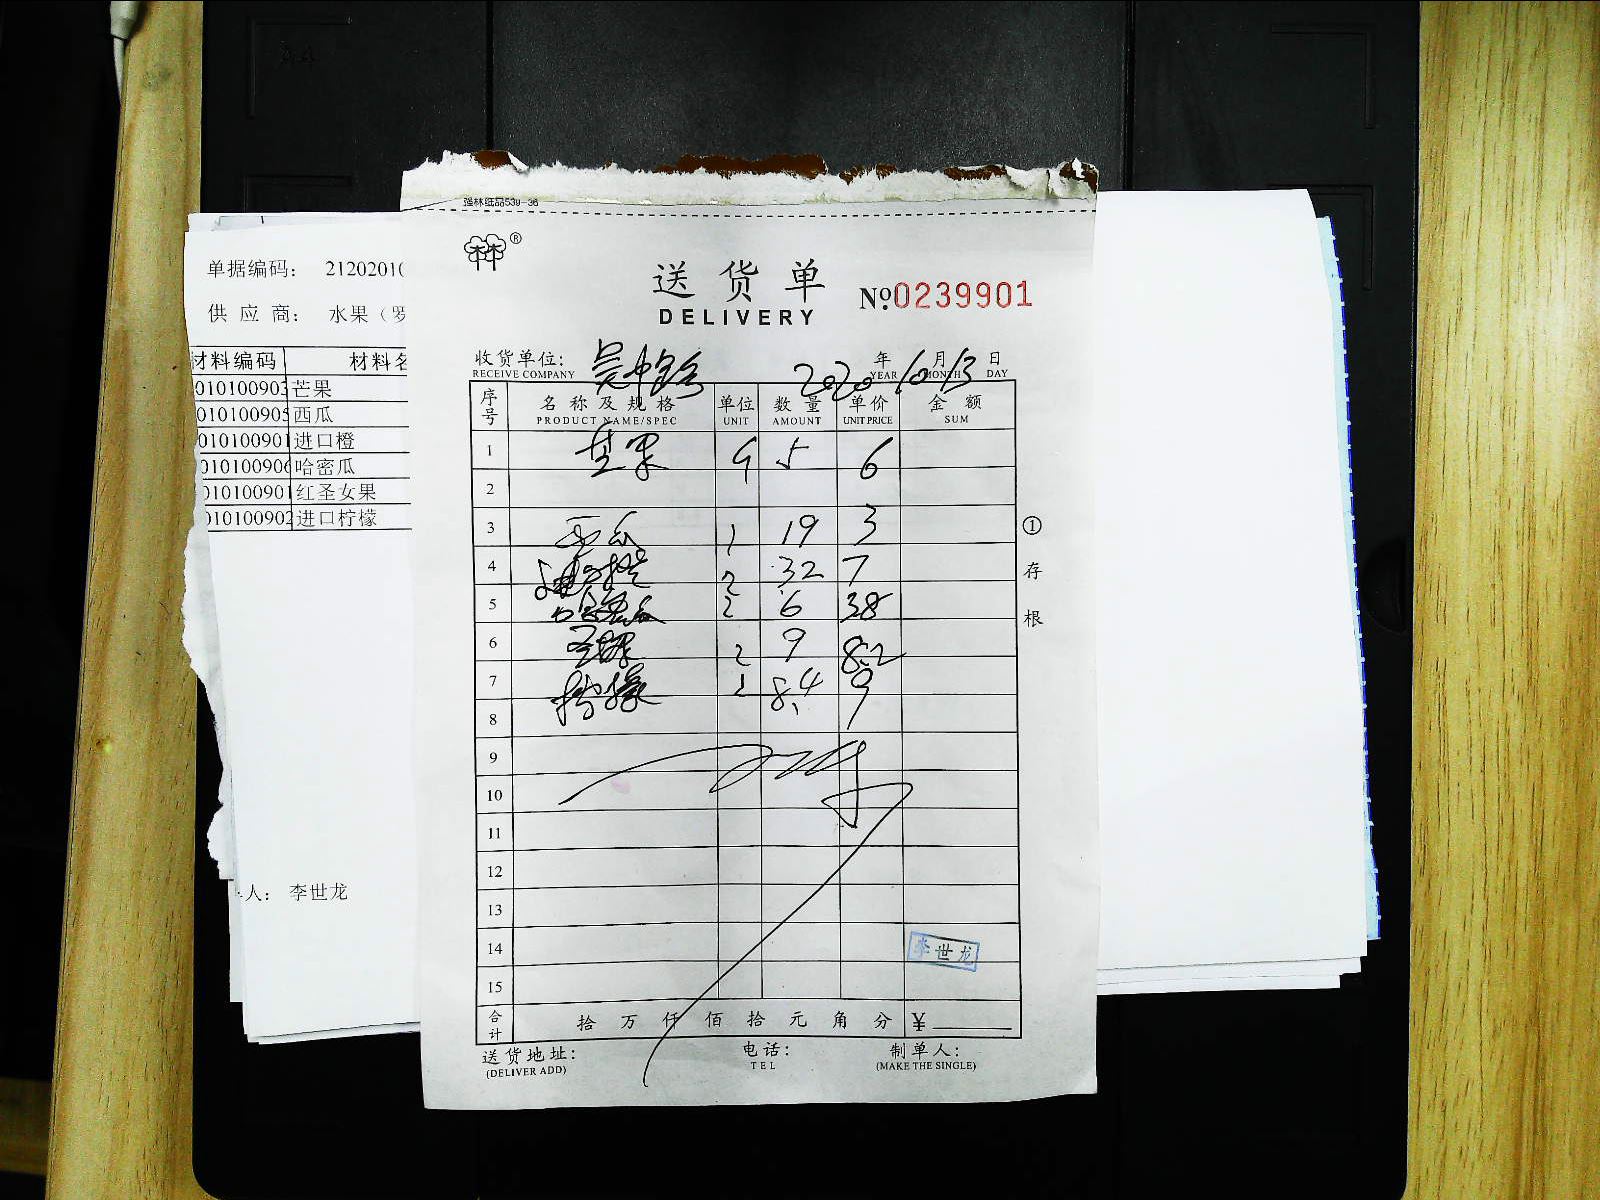 强林纸品539-36
®
送货单
DELIVERY
№0239901
收货单位:
RECEIVE COMPANY
2020年10月13日
YEAR MONTH DAY
序号 名称及规格 单位 数量 单价 金额
PRODUCT NAME/SPEC UNIT AMOUNT UNIT PRICE SUM
1 芒果 5 6
2
3 西瓜 1 19 3
4 进口橙 2 32 7
5 哈密瓜 2 6 38
6 圣女果 2 9 8.2
7 柠檬 1 8.4 9
8
9
10
11
12
13
14
15
李世龙
合计 拾万仟佰拾元角分 ¥
送货地址: 电话: 制单人:
(DELIVER ADD) TEL (MAKE THE SINGLE)
①存根
单据编码: 21202010
供应商: 水果(罗
材料编码 材料名
010100903 芒果
010100905 西瓜
010100901 进口橙
010100906 哈密瓜
010100901 红圣女果
010100902 进口柠檬
人: 李世龙